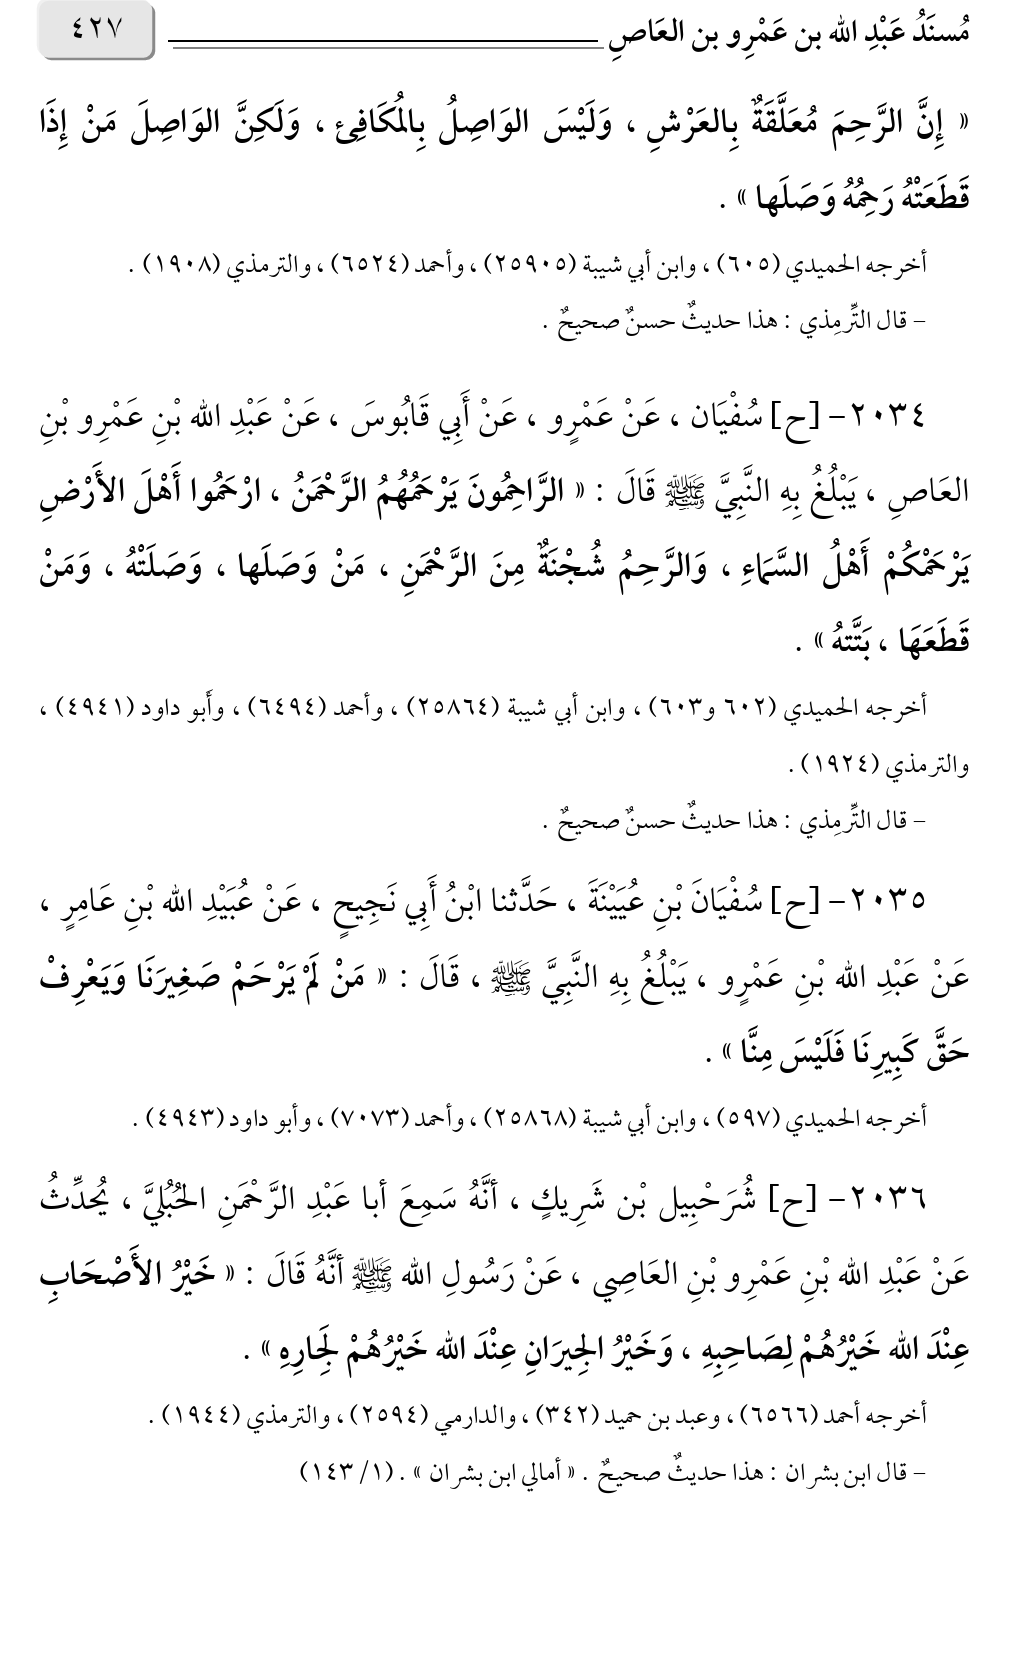 مُسنَدُ عَبْدِ الله بن عَمْرِو بن العَاصِ ٤٢٧
« إِنَّ الرَّحِمَ مُعَلَّقَةٌ بِالعَرْشِ ، وَلَيْسَ الوَاصِلُ بِالمُكَافِئِ ، وَلَكِنَّ الوَاصِلَ مَنْ إِذَا
قَطَعَتْهُ رَحِمُهُ وَصَلَها » .
أخرجه الحميدي (٦٠٥) ، وابن أبي شيبة (٢٥٩٠٥) ، وأحمد (٦٥٢٤) ، والترمذي (١٩٠٨) .
– قال التِّرمِذي : هذا حديثٌ حسنٌ صحيحٌ .
٢٠٣٤- [ح] سُفْيَان ، عَنْ عَمْرٍو ، عَنْ أَبِي قَابُوسَ ، عَنْ عَبْدِ الله بْنِ عَمْرِو بْنِ
العَاصِ ، يَبْلُغُ بِهِ النَّبِيَّ ﷺ قَالَ : « الرَّاحِمُونَ يَرْحَمُهُمُ الرَّحْمَنُ ، ارْحَمُوا أَهْلَ الأَرْضِ
يَرْحَمْكُمْ أَهْلُ السَّمَاءِ ، وَالرَّحِمُ شُجْنَةٌ مِنَ الرَّحْمَنِ ، مَنْ وَصَلَها ، وَصَلَتْهُ ، وَمَنْ
قَطَعَهَا ، بَتَّتهُ » .
أخرجه الحميدي (٦٠٢ و٦٠٣) ، وابن أبي شيبة (٢٥٨٦٤) ، وأحمد (٦٤٩٤) ، وأَبو داود (٤٩٤١) ،
والترمذي (١٩٢٤) .
– قال التِّرمِذي : هذا حديثٌ حسنٌ صحيحٌ .
٢٠٣٥- [ح] سُفْيَانَ بْنِ عُيَيْنَةَ ، حَدَّثنا ابْنُ أَبِي نَجِيحٍ ، عَنْ عُبَيْدِ الله بْنِ عَامِرٍ ،
عَنْ عَبْدِ الله بْنِ عَمْرٍو ، يَبْلُغُ بِهِ النَّبِيَّ ﷺ ، قَالَ : « مَنْ لَمْ يَرْحَمْ صَغِيرَنَا وَيَعْرِفْ
حَقَّ كَبِيرِنَا فَلَيْسَ مِنَّا » .
أخرجه الحميدي (٥٩٧) ، وابن أبي شيبة (٢٥٨٦٨) ، وأحمد (٧٠٧٣) ، وأبو داود (٤٩٤٣) .
٢٠٣٦- [ح] شُرَحْبِيل بْن شَرِيكٍ ، أنَّهُ سَمِعَ أبا عَبْدِ الرَّحْمَنِ الحُبُليَّ ، يُحدِّثُ
عَنْ عَبْدِ الله بْنِ عَمْرِو بْنِ العَاصِي ، عَنْ رَسُولِ الله ﷺ أنَّهُ قَالَ : « خَيْرُ الأَصْحَابِ
عِنْدَ الله خَيْرُهُمْ لِصَاحِبِهِ ، وَخَيْرُ الجِيرَانِ عِنْدَ الله خَيْرُهُمْ لِجَارِهِ » .
أخرجه أحمد (٦٥٦٦) ، وعبد بن حميد (٣٤٢) ، والدارمي (٢٥٩٤) ، والترمذي (١٩٤٤) .
– قال ابن بشران : هذا حديثٌ صحيحٌ . « أمالي ابن بشران » . (١/ ١٤٣)